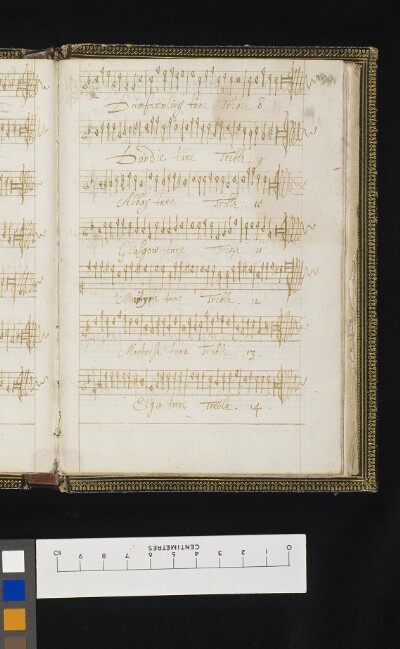 Dumfermlines tune Treble 8
Dundie tune Treble 9
Abbay tune Treble 10
Glasgow tune Treble 11
Martyrs tune Treble 12
tune Treble 13.
Elgin tune Treble 14.
10 9 8 7 6 5 4 3 2 1 0
CENTIMETRES